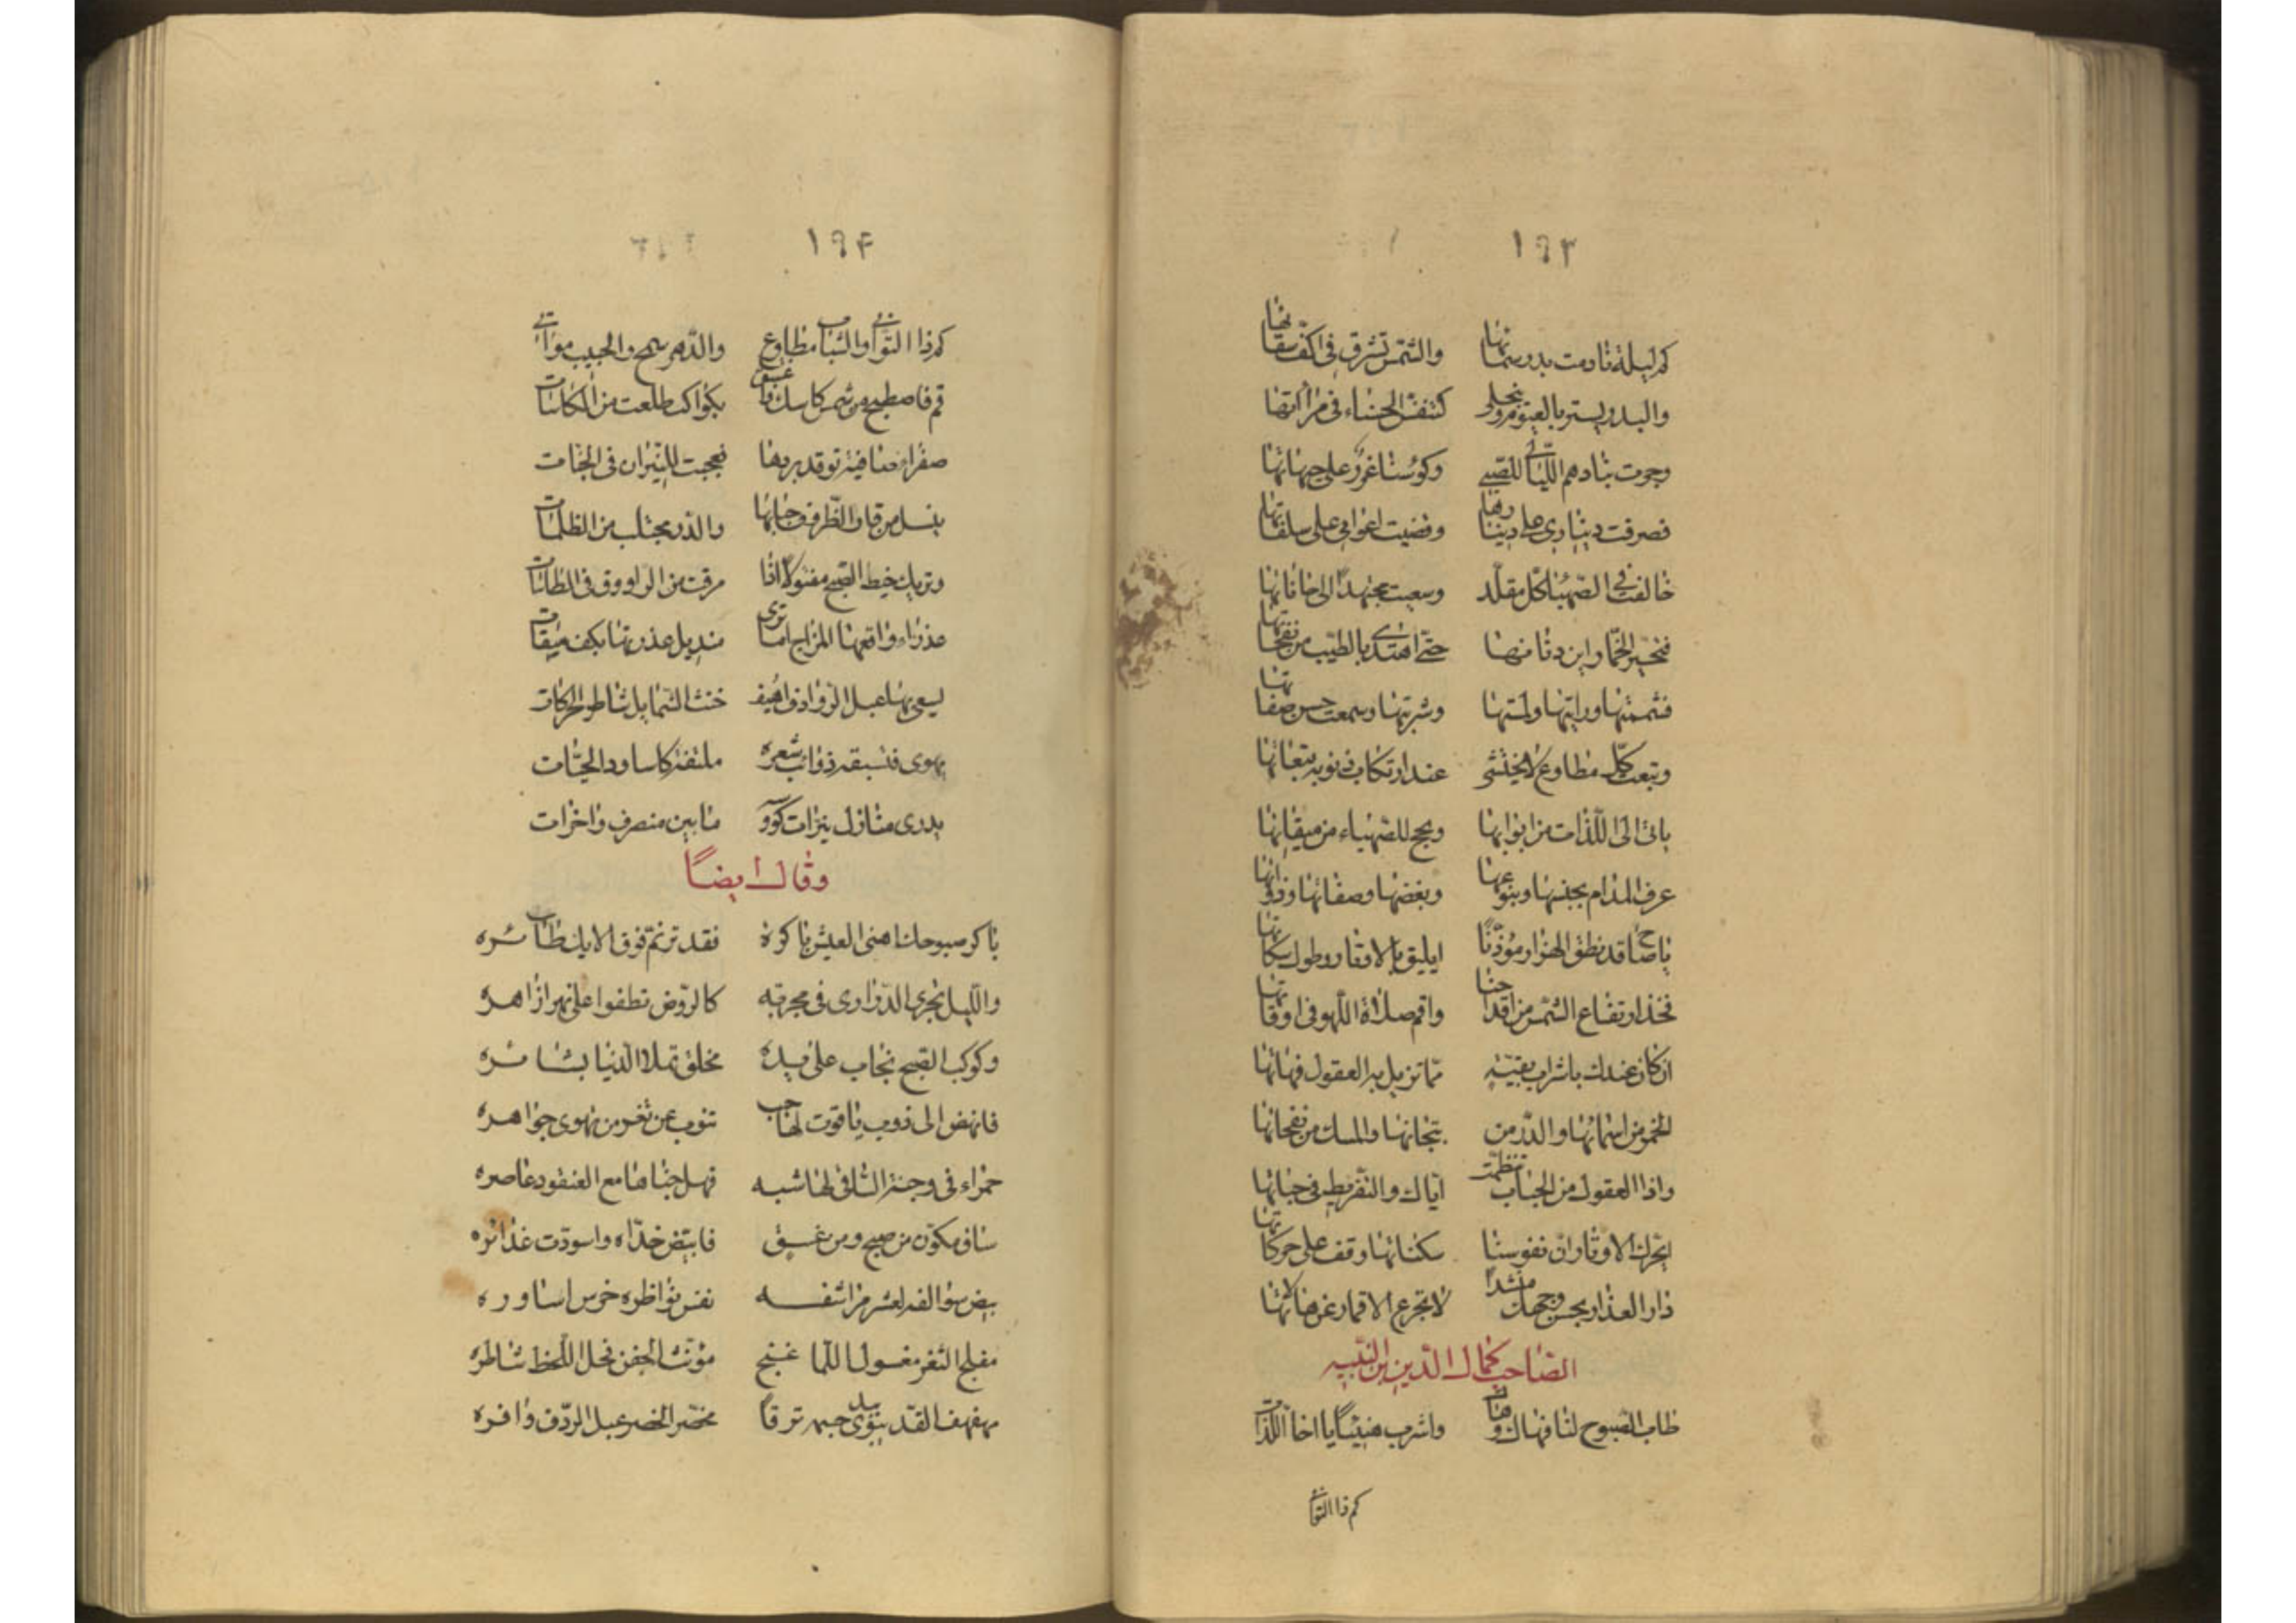 ١٩٣
كم ليلة نادمت بدر سمائها والشمس تشرق في اكف سقاتها
والبدر يستر بالغيوم وينجلي كتنفس الحسناء في مرآتها
وجرت بنا دهم الليالي للصبى وكؤسنا غرر على جبهاتها
فصرفت ديناري على دينارها وقضيت اعوامي على ساقاتها
خالفت في الصهباء كل مقلد وسعيت مجتهدا الى حاناتها
فتحير الخمار اين دنانها حتى اهتدى بالطيب من نفحاتها
فشممتها ورايتها ولمستها وشربتها وسمعت حسن صفاتها
وتبعت كل مطاوع لا يختشي عند ارتكاب ذنوبه تبعاتها
ياتي الى اللذات من ابوابها ويحج للصهباء من ميقاتها
عرف المدام بجنسها وبنوعها وبفضها وصفاتها وذواتها
يا صاح قد نطق الهزار مؤذنا ايليق بالاوتار وطول سكاتها
فخذ ارتفاع الشمس من اقداحنا واقم صلاة اللهو في اوقاتها
ان كان عندك يا شراب بقية مما تزيل به العقول فهاتها
الخمر من اسمائها والدر من تيجانها والمسك من نفحاتها
واذا العقود من الحباب تنظمت اياك والتفريط في حباتها
ايحرك الاوتار ان نفوسنا سكناتها وقف على حركاتها
دار العذار بحسن وجهك منشدا لا تخرج الاقمار عن هالاتها
الصاحب كمال الدين بن النبيه
طاب الصبوح لنا فهاك وهات واشرب هنيئا يا اخا اللذات
كم ذا التواني
١٩٤
كم ذا التواني والشباب مطاوع والدهر سمح والحبيب مواتي
قم فاصطبح من شمس كاسك واغتبق بكواكب طلعت من الكاسات
صفراء صافية توقد بردها فعجبت للنيران في الجنات
ينسل من قار الظروف حبابها والدر مجتلب من الظلمات
وتريك خيط الصبح مفتولا اذا مرقت من الراووق في الطاسات
عذراء واقعها المزاج اما ترى منديل عذرتها بكف سقات
يسعى بها عبل الروادف اهيف خنث الشمايل شاطر الحركات
يهوى فتسبقه ذوائب شعره ملتفة كاساود الحيات
يدرى منازل نيرات كووسه ما بين منصرف واخرات
وقال ايضا
باكر صبوحك اهنى العيش باكره فقد ترنم فوق الايك طائره
والليل تجري الدراري في مجرته كالروض تطفوا على نهر ازاهره
وكوكب الصبح نجاب على يده مخلق تملا الدنيا بشائره
فانهض الى ذوب ياقوت لها حبب تنوب عن ثغر من تهوى جواهره
حمراء في وجنة الساقي لها شبه فهل جناها مع العنقود عاصره
ساق تكون من صبح ومن غسق فابيض خداه واسودت غدائره
بيض سوالفه لعس مراشفه نعس نواظره خرس اساوره
مفلج الثغر معسول اللما غنج مؤنث الجفن فحل اللحظ شاطره
مهفهف القد يبدى جسمه ترفا مخصر الخصر عبل الردف وافره